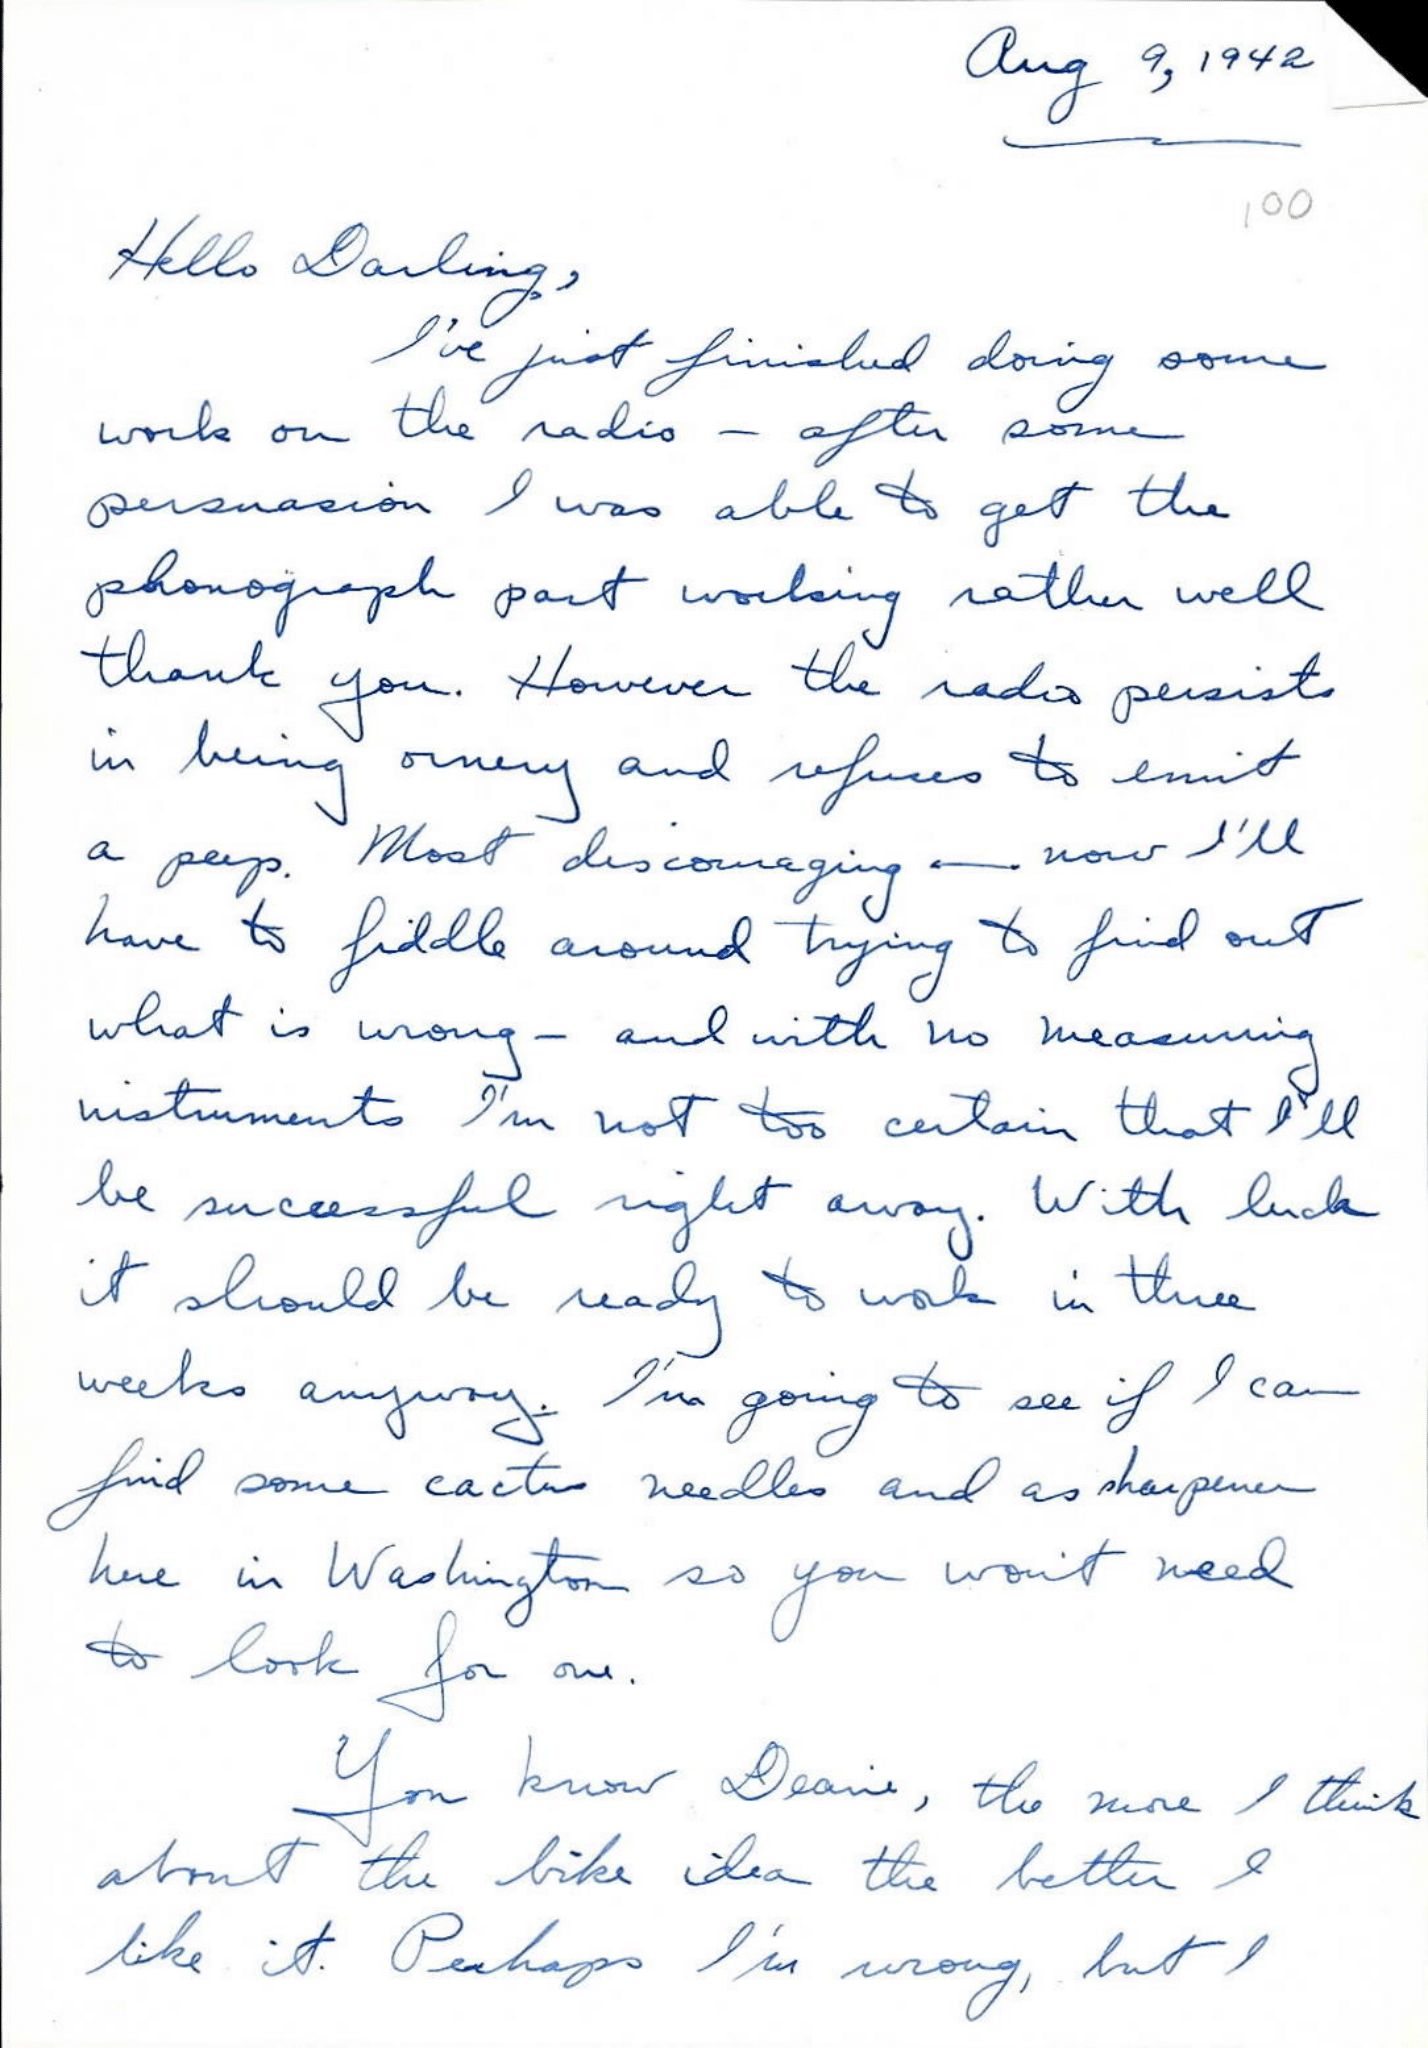 Aug 9, 1942
100
Hello Darling,
I've just finished doing some
work on the radio – after some
persuasion I was able to get the
phonograph part working rather well
thank you. However the radio persists
in being ornery and refuses to emit
a peep. Most discouraging — now I'll
have to fiddle around trying to find out
what is wrong – and with no measuring
instruments I'm not too certain that I'll
be successful right away. With luck
it should be ready to work in three
weeks anyway. I'm going to see if I can
find some cactus needles and a sharpener
here in Washington so you won't need
to look for one.
You know Dearie, the more I think
about the bike idea the better I
like it. Perhaps I'm wrong, but I